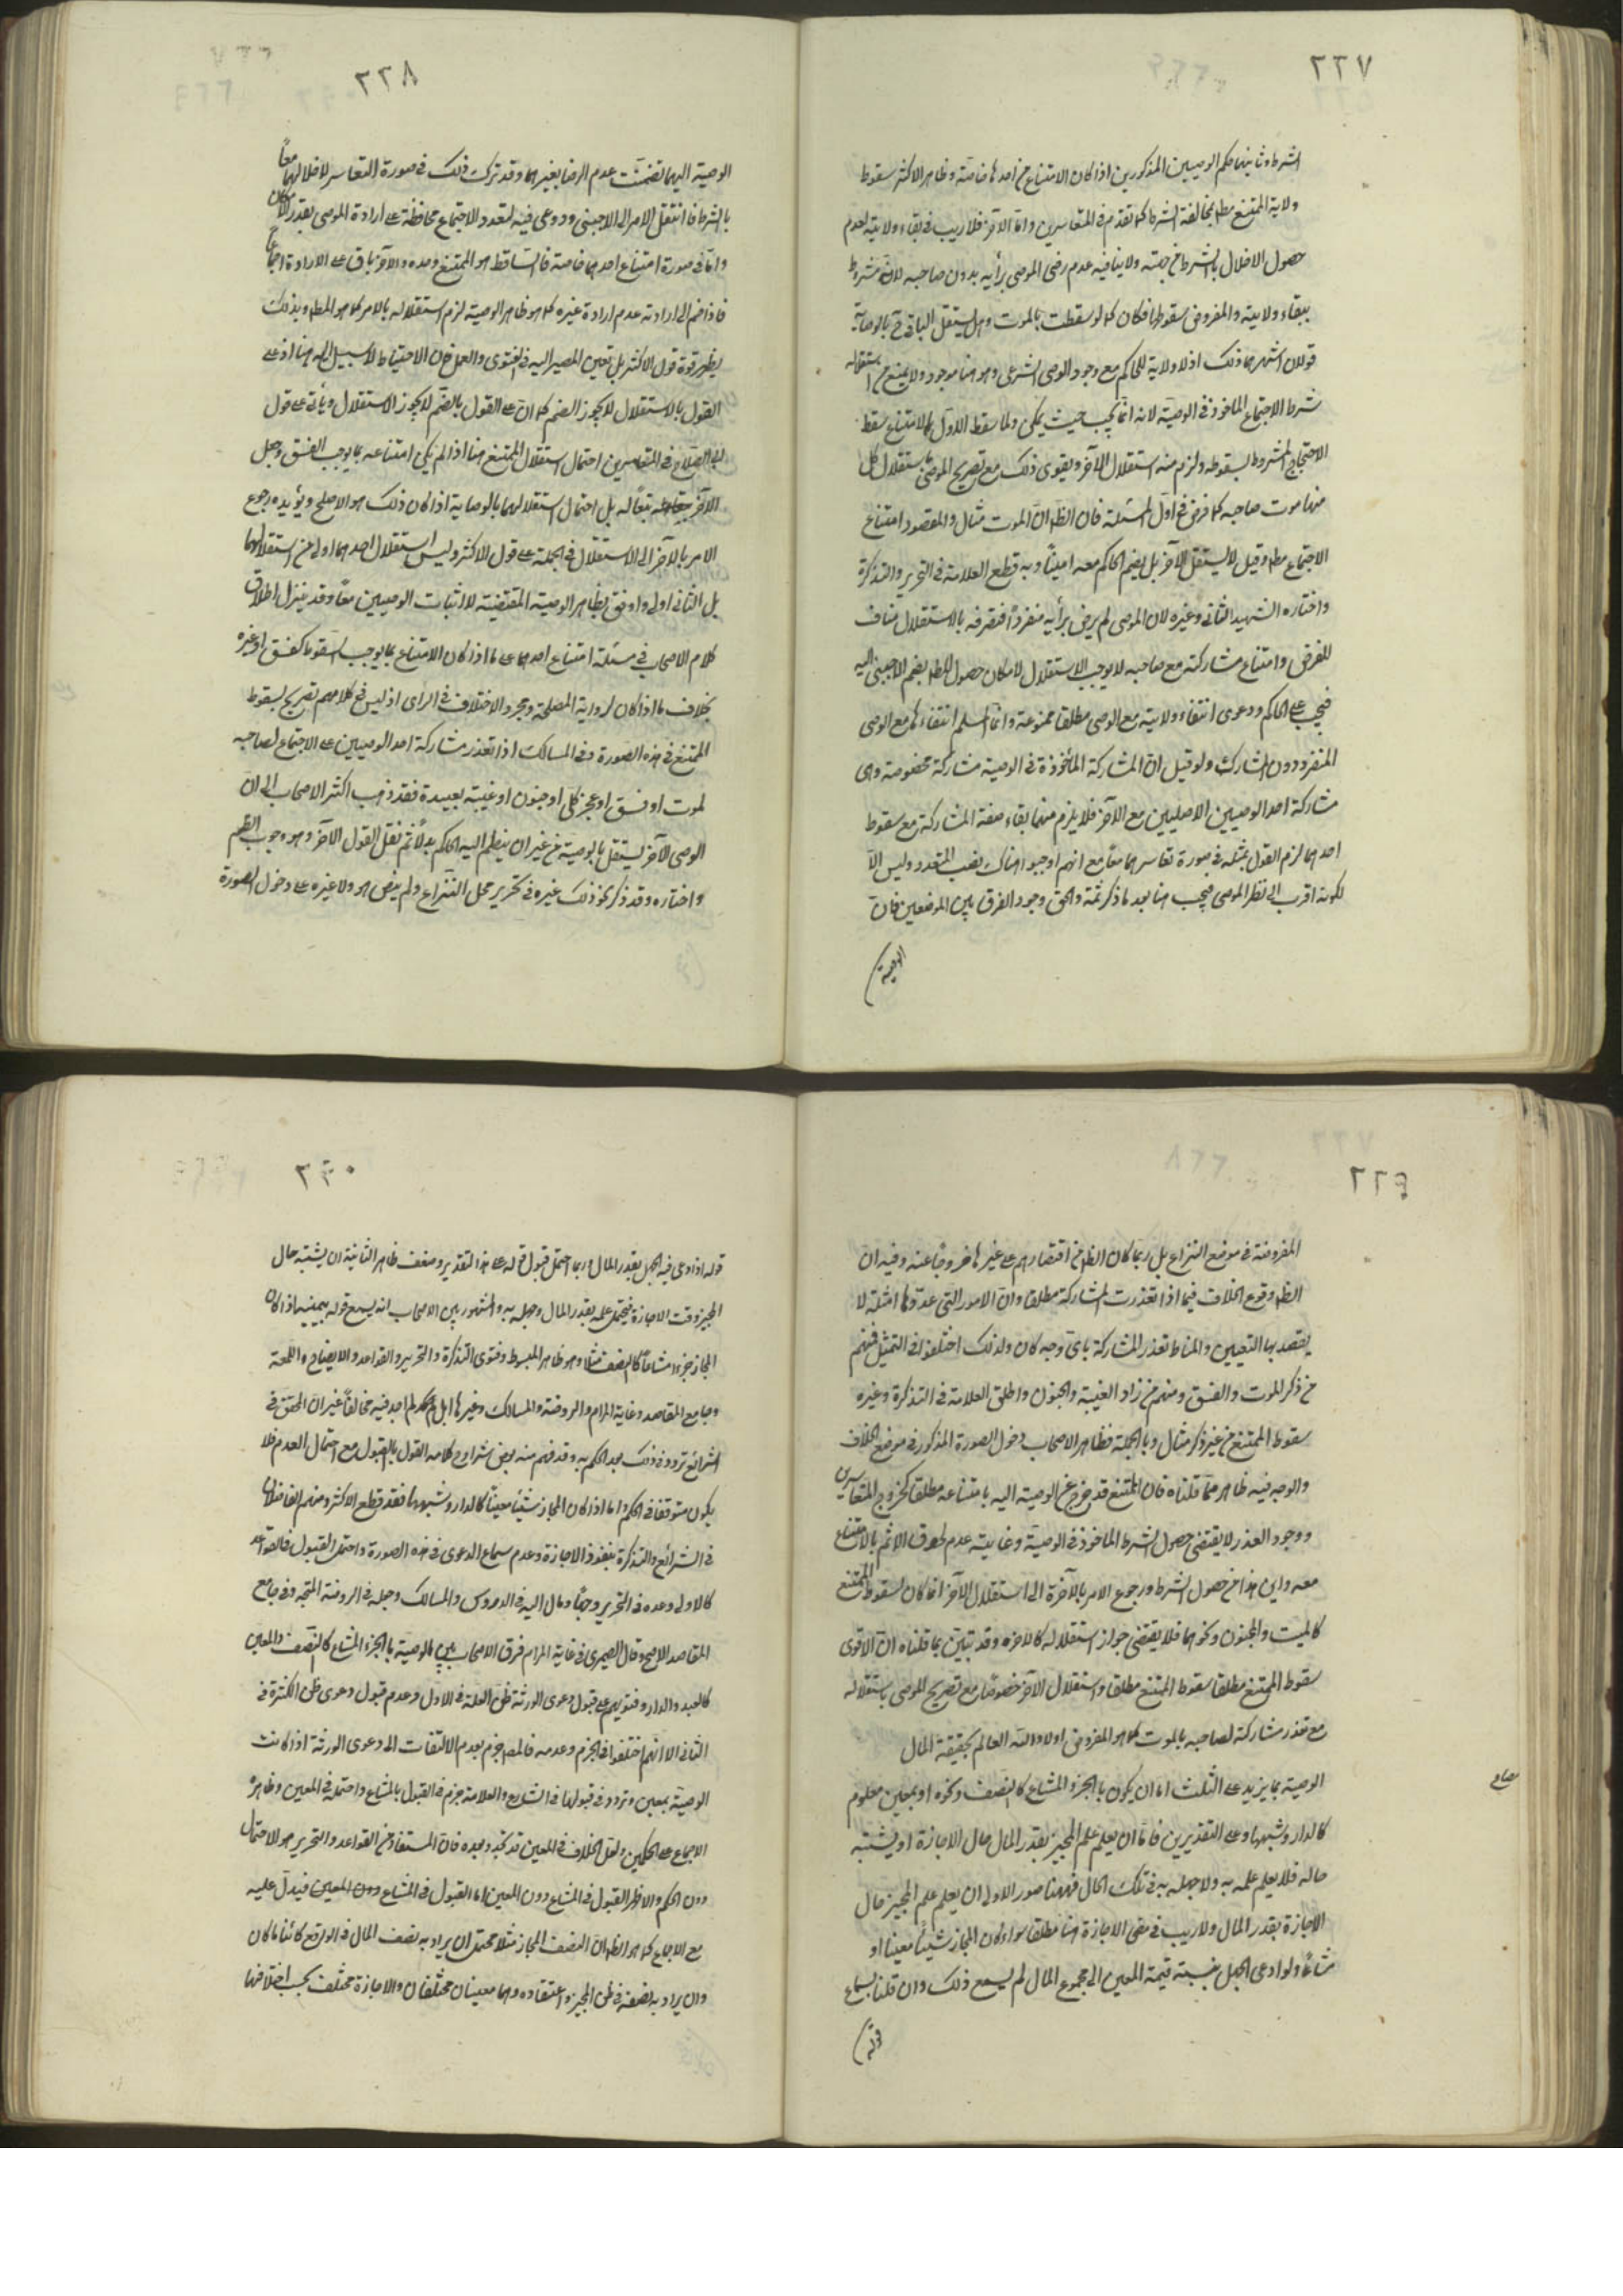 ٢٢٧
الشرط وثانيهما حكم الوصيين المذكورين اذا كان الامتناع من احدهما خاصة وظاهر الاكثر سقوط
ولاية الممتنع مطلقا لمخالفة الشرط كما تقدم في المتعاسرين واما الآخر فلا ريب في بقاء ولايته لعدم
حصول الاخلال بالشرط من جهته ولا ينافيه عدم رضى الموصى برأيه بدون صاحبه لانه مشروط
ببقاء ولايته والمفروض سقوطها فكان كما لو سقطت بالموت وهل يستقل الباقي ح بالوصاية
قولان اشهرهما ذلك اذ لا ولاية للحاكم مع وجود الوصي الشرعي وهو هنا موجود ولا يمنع من استقلاله
شرط الاجتماع الماخوذ في الوصية لانه انما يجب حيث يمكن ولما سقط الاول بالامتناع سقط
الاجتماع المشروط بسقوطه ولزم منه استقلال الآخر ويقوى ذلك مع تصريح الموصى باستقلال كل
منهما موت صاحبه كما فرض في اول المسئلة فان الظ ان الموت مثال والمقصود امتناع
الاجتماع مط وقيل لا يستقل الآخر بل يضم الحاكم معه امينا وبه قطع العلامة في التحرير والتذكرة
واختاره الشهيد الثاني وغيره لان الموصى لم يرض برأيه منفردا فتصرفه بالاستقلال مناف
للغرض وامتناع مشاركته مع صاحبه لا يوجب الاستقلال لامكان حصول المط بضم الاجنبي اليه
فيجب على الحاكم ودعوى انتفاء ولايته مع الوصى مطلقا ممنوعة وانما المسلم انتفاءها مع الوصى
المنفرد دون المشارك ولو قيل ان المشاركة المأخوذة في الوصية مشاركة مخصوصة وهي
مشاركة احد الوصيين الاصليين مع الآخر فلا يلزم منهما بقاء صفة المشاركة مع سقوط
احدهما لزم القول بمثله في صورة تعاسرهما معا مع انهم اوجبوا هناك نصب المتعدد وليس الا
لكونه اقرب الى نظر الموصى فيجب هنا بعد ما ذكر ثمة والحق وجود الفرق بين الموضعين فان
الوصية
٢٢٨
الوصية اليهما تضمنت عدم الرضا بغيرهما وقد ترك ذلك في صورة التعاسر لاخلالهما معا
بالشرط فانتقل الامر الى الاجنبي وروعي فيه لتعدد الاجتماع محافظة على ارادة الموصى بقدر الامكان
واما في صورة امتناع احدهما خاصة فالساقط هو الممتنع وحده والآخر باق على الارادة اجماعا
فاذا ضم الى ارادته عدم ارادة غيره كما هو ظاهر الوصية لزم استقلاله بالامر كما هو المط وبذلك
يظهر قوة قول الاكثر بل تعين المصير اليه في الفتوى والعمل فان الاحتياط لا سبيل اليه هنا اذ على
القول بالاستقلال لا يجوز الضم كما ان على القول بالضم لا يجوز الاستقلال ويأتي على قول
ابى الصلاح في المتعاسرين احتمال استقلال الممتنع هنا اذا لم يكن امتناعه بما يوجب الفسق وجعل
الآخر تبعا له بل احتمال استقلالهما بالوصاية اذا كان ذلك هو الاصلح ويؤيده رجوع
الامر بالآخر الى الاستقلال في الجملة على قول الاكثر وليس استقلال احدهما اولى من استقلالهما
بل الثاني اولى واوفق بظاهر الوصية المقتضية لاثبات الوصيين معا وقد ينزل اطلاق
كلام الاصحاب في مسئلة امتناع احدهما على ما اذا كان الامتناع بما يوجب السقوط كفسق او غيره
بخلاف ما اذا كان لرواية المصلحة ومجرد الاختلاف في الراى اذ ليس في كلامهم تصريح بسقوط
الممتنع في هذه الصورة وفي المسالك اذا تعذر مشاركة احد الوصيين على الاجتماع لصاحبه
لموت او فسق او عجز كلى او جنون او غيبة بعيدة فقد ذهب اكثر الاصحاب الى ان
الوصى الآخر يستقل بالوصية من غير ان ينظم اليه الحاكم بدلا ثم نقل القول الآخر وهو وجوب الضم
واختاره وقد ذكر نحو ذلك غيره في تحرير محل النزاع ولم ينص هو ولا غيره على دخول الصورة
٢٢٩
المفروضة في موضع النزاع بل ربما كان الظ من اقتصارهم على غيرها خروجا عنه وفيه ان
الظ وقوع الخلاف فيما اذا تعذرت المشاركة مطلقا وان الامور التي عدوها امثلة لا
يقصد بها التعيين والمناط تعذر المشاركة باى وجه كان ولذلك اختلفوا في التمثيل فمنهم
من ذكر الموت والفسق ومنهم من زاد الغيبة والجنون واطلق العلامة في التذكرة وغيره
سقوط الممتنع من غير ذكر مثال وبالجملة فظاهر الاصحاب دخول الصورة المذكورة في موضع الخلاف
والوجه فيه ظاهر مما قلناه فان الممتنع قد خرج عن الوصية اليه بامتناعه مطلقا كخروج المتعاسرين
ووجود العذر لا يقتضى حصول الشرط الماخوذ في الوصية وغايته عدم لحوق الاثم بالامتناع
معه واين هذا من حصول الشرط ورجوع الامر بالآخرة الى استقلال الآخر انما كان لسقوط الممتنع
كالميت والمجنون ونحوهما فلا يقتضى جواز استقلاله كالآخر وقد تبين بما قلناه ان الاقوى
سقوط الممتنع مطلقا سقوط الممتنع مطلقا واستقلال الآخر خصوصا مع تصريح الموصى باستقلاله
مع تعذر مشاركة لصاحبه بالموت كما هو المفروض اولا والله العالم بحقيقة الحال
الوصية بما يزيد على الثلث اما ان يكون بالجزء المشاع كالنصف ونحوه او بمعين معلوم
كالدار وشبهها وعلى التقديرين فاما ان يعلم علم المجيز بقدر المال حال الاجازة او يشتبه
حاله فلا يعلم علمه به ولا جهله به في تلك الحال فههنا صور الاولى ان يعلم علم المجيز حال
الاجازة بقدر المال ولا ريب في مضى الاجازة هنا مطلقا سواء كان المجاز شيئا معينا او
مشاعا ولو ادعى الجهل بنسبة قيمة المعين الى مجموع المال لم يسمع ذلك وان قلنا بسماع
قوله
٢٣٠
قوله اذا ادعى فيه الجهل بقدر المال وربما احتمل قبول قوله على هذا التقدير وضعف ظاهر الثانية ان يشتبه حال
المجيز وقت الاجازة فيحتمل علمه بقدر المال وجهله به والمشهور بين الاصحاب انه يسمع قوله بيمينه اذا كان
المجاز جزءا مشاعا كالنصف مثلا وهو ظاهر المبسوط وفتوى التذكرة والتحرير والقواعد والايضاح واللمعة
وجامع المقاصد وغاية المرام والروضة والمسالك وغيرها بل لم اجد فيه مخالفا غير ان المحقق في
الشرائع تردد في ذلك بعد الحكم به وقد فهم منه بعض شراح كلامه القول بالقبول مع احتمال العدم فلا
يكون متوقفا في الحكم واما اذا كان المجاز شيئا معينا كالدار وشبهها فقد قطع الاكثر ومنهم الفاضلان
في الشرائع والتذكرة بنفوذ الاجازة وعدم سماع الدعوى في هذه الصورة واحتمل القبول في القواعد
كالاولى وعده في التحرير وجها ومال اليه في الدروس والمسالك وجعله في الروضة المتجه وفي جامع
المقاصد الاصح وقال الصيمرى في غاية المرام فرق الاصحاب بين الوصية بالجزء المشاع كالنصف والمعين
كالعبد والدار وفتويهم على قبول دعوى الورثة ظن القلة في الاول وعدم قبول دعوى ظن الكثرة في
الثاني الا انهم اختلفوا في الجزم وعدمه فالمص جزم بعدم الالتفات الى دعوى الورثة اذا كانت
الوصية بمعين وتردد في قبولها في المشاع والعلامة جزم في القبول بالمشاع واحتمله في المعين وظاهره
الاجماع على الحكمين ونقل الخلاف في المعين قد تجدد بعده فان المستفاد من القواعد والتحرير هو الاحتمال
دون الحكم والاظهر القبول في المشاع دون المعين اما القبول في المشاع دون المعين فيدل عليه
مع الاجماع كما هو الظ ان النصف المجاز مثلا محتمل ان يراد به نصف المال في الواقع كائنا ما كان
وان يراد به نصفه في ظن المجيز واعتقاده وهما معينان مختلفان والاجازة مختلف بحسب اختلافهما